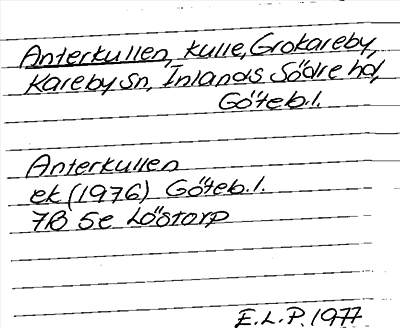 Anterkullen, kulle, Grokareby,
Kareby Sn, Inlands Södre hd,
Göteb.l.
Anterkullen
ek (1976) Göteb.l.
7B 5e Löstorp
E.L.P. 1977